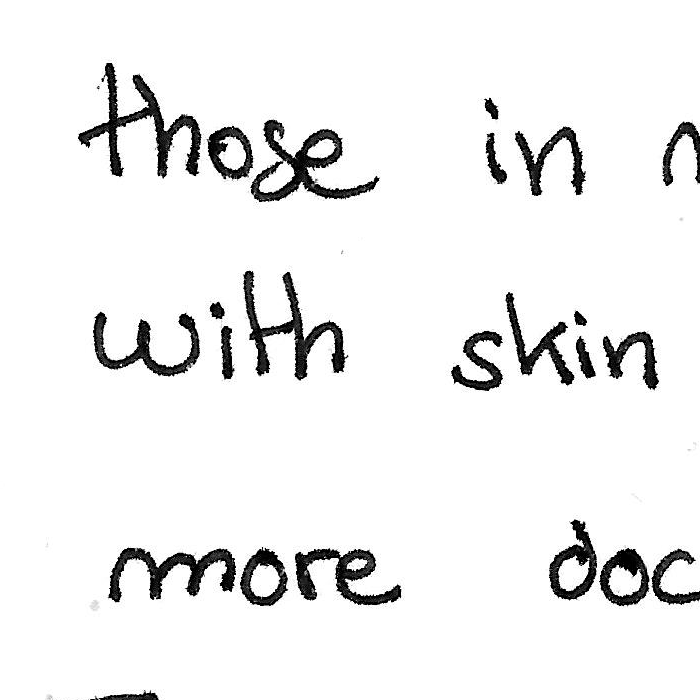 those in
with skin
more doc